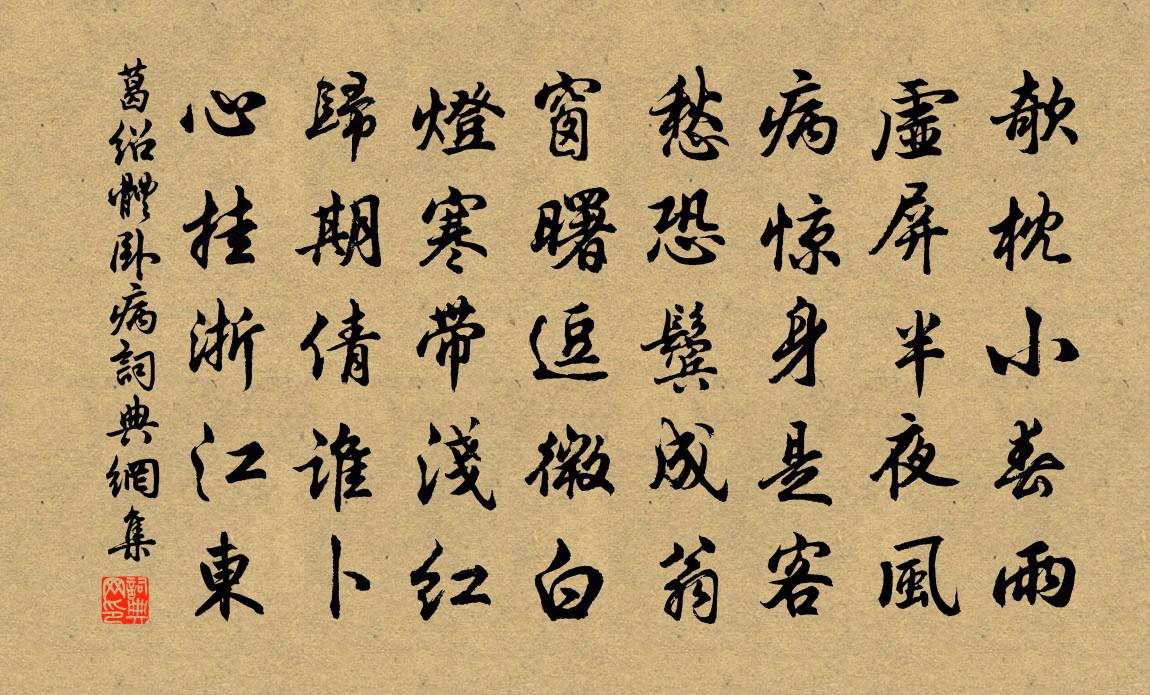 欹枕小春雨
虛屏半夜風
病惊身是客
愁恐鬢成翁
窗曙逗微白
燈寒帶淺紅
歸期倩誰卜
心挂浙江東
葛紹體臥病詞典網集
詞典网印